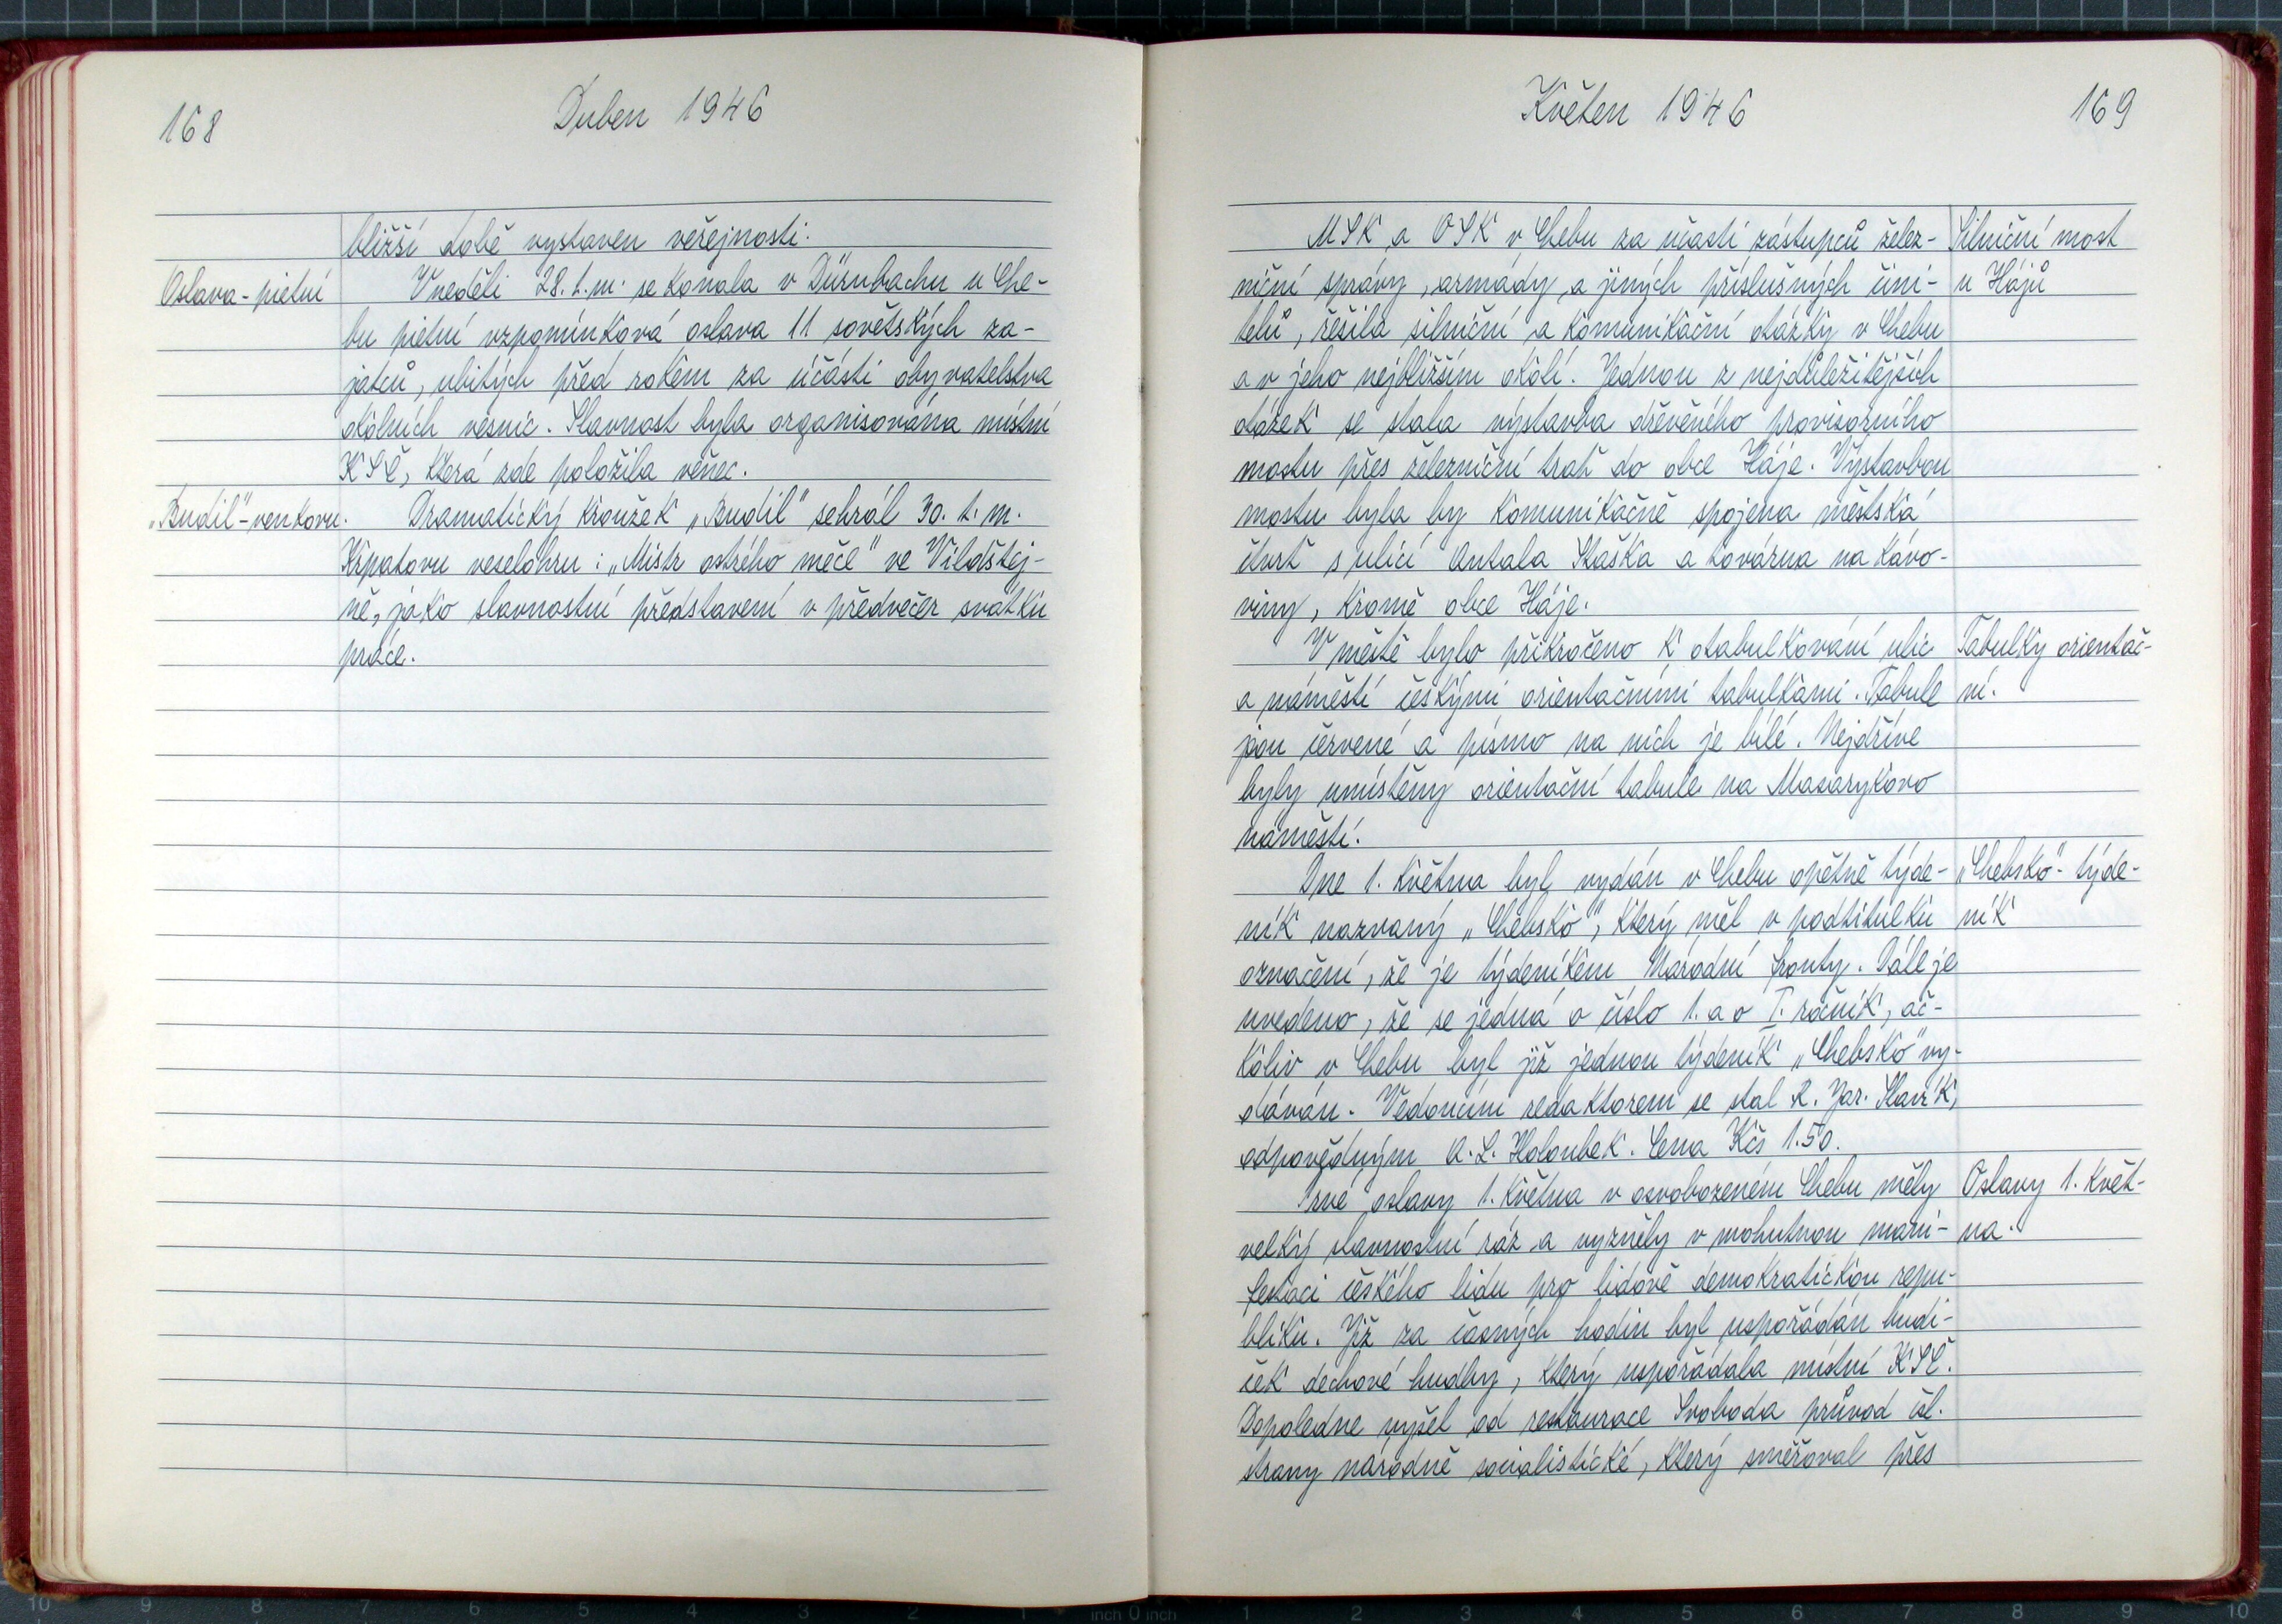 168
Duben 1946
bližší době vystaven veřejnosti.
Oslava-pietní
V neděli 28. t.m. se konala v Dürnbachu u Che-
bu pietní vzpomínková oslava 11 sovětských za-
jatců, ubitých před rokem za účasti obyvatelstva
okolních vesnic. Slavnost byla organisována místní
KSČ, která zde položila věnec.
„Budil"-venkovu.
Dramatický kroužek „Budil" sehrál 30. t. m.
Krpatovu veselohru: „Mistr ostrého meče" ve Vildštej-
ně, jako slavnostní představení v předvečer svátku
práce.
Květen 1946
169
MSK a OSK v Chebu za účasti zástupců želez-
Silniční most
niční správy, armády a jiných příslušných čini-
u Hájů
telů, řešila silniční a komunikační otázky v Chebu
a v jeho nejbližším okolí. Jednou z nejdůležitějších
otázek se stala výstavba dřevěného provisorního
mostu přes železniční trať do obce Háje. Výstavbou
mostu byla by komunikačně spojena městská
čtvrť s ulicí Antala Staška a továrna na kávo-
viny, kromě obce Háje.
V městě bylo přikročeno k otabulkování ulic
Tabulky orientač-
a náměstí českými orientačními tabulkami. Tabule
ní.
jsou červené a písmo na nich je bílé. Nejdříve
byly umístěny orientační tabule na Masarykovo
náměstí.
Dne 1. května byl vydán v Chebu opětně týde-
„Chebsko"- týde-
ník nazvaný „Chebsko", který měl v podtitulku
ník
označení, že je týdeníkem Národní fronty. Dále je
uvedeno, že se jedná o číslo 1. a o I. ročník, ač-
koliv v Chebu byl již jednou týdeník „Chebsko" vy-
dáván. Vedoucím redaktorem se stal R. Jar. Slavík,
odpovědným A. L. Holoubek. Cena Kčs 1.50.
Prvé oslavy 1. května v osvobozeném Chebu měly
Oslavy 1. květ-
velký slavnostní ráz a vyzněly v mohutnou mani-
na.
festaci českého lidu pro lidově demokratickou repu-
bliku. Již za časných hodin byl uspořádán budí-
ček dechové hudby, který uspořádala místní KSČ.
Dopoledne vyšel od restaurace Svoboda průvod čsl.
strany národně socialistické, který směřoval přes